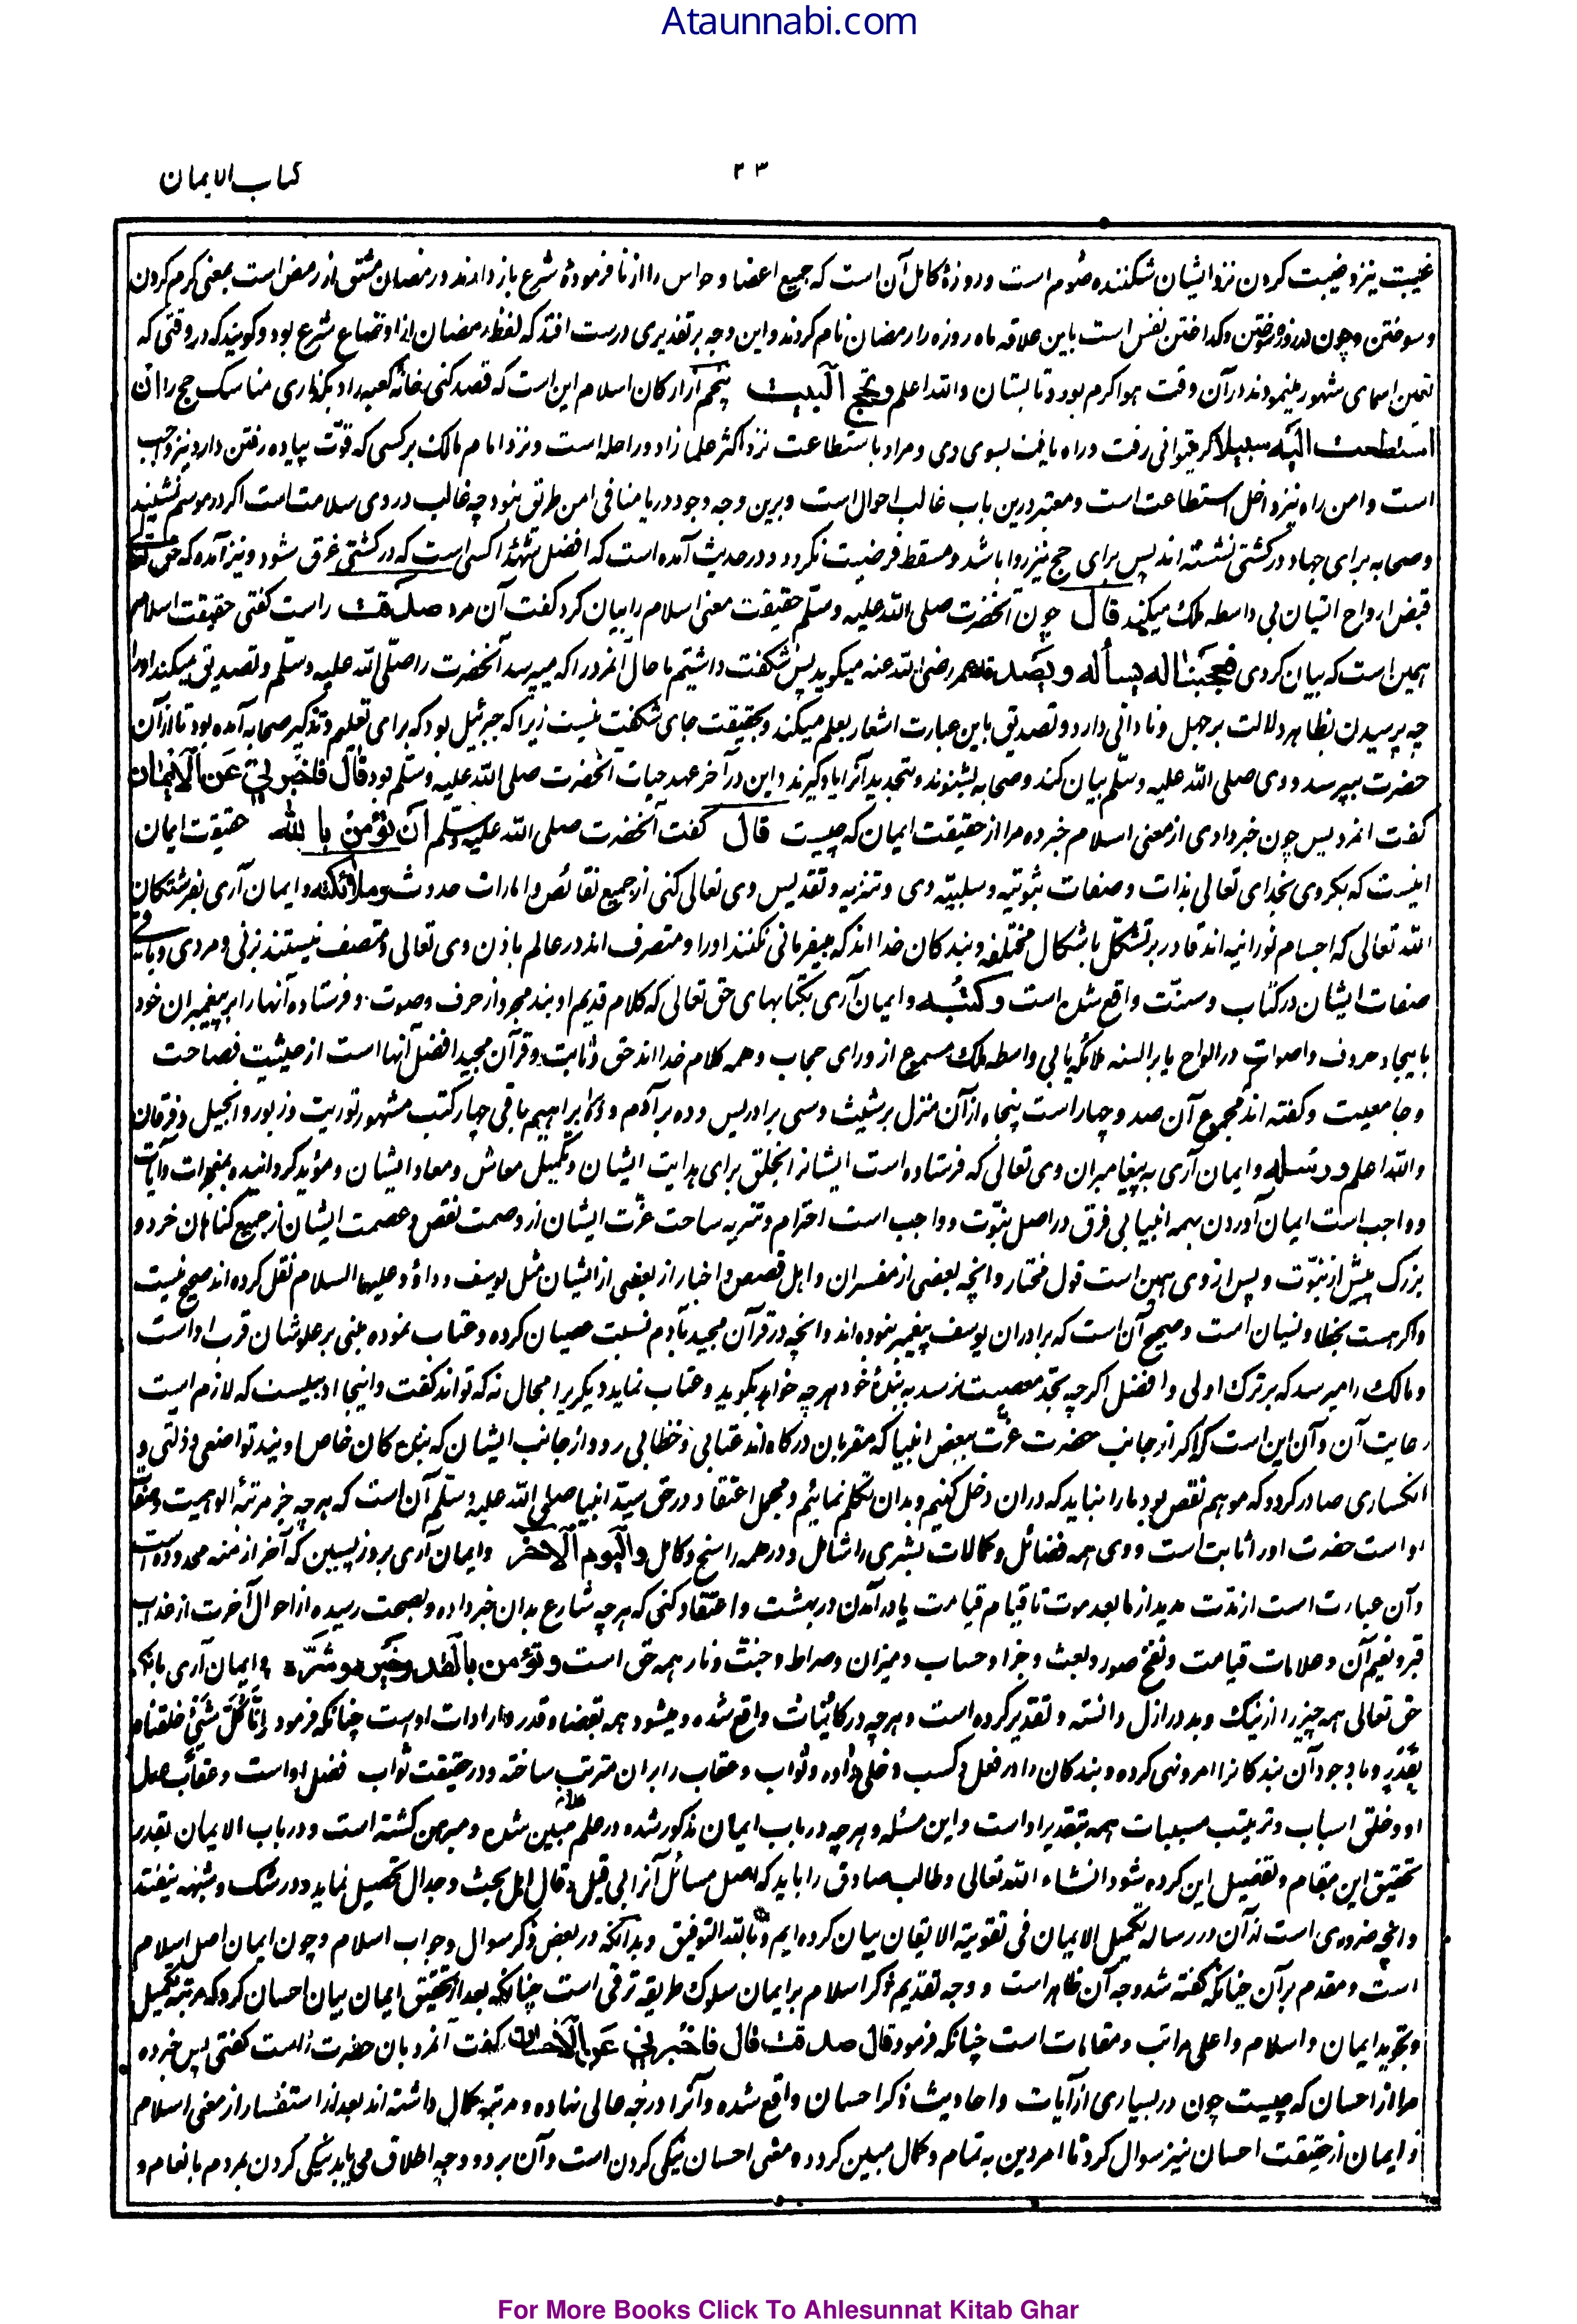 Ataunnabi.com
کتاب الایمان
۲۳
غیبت نیز و غیبت کردن نزد ایشان شکننده صوم است و روزهٔ کامل آن است که جمیع اعضا و حواس را از نا فرمودهٔ شرع باز دارند و رمضان مشتق از رمض است بمعنی گرم کردن
و سوختن و چون در روزه سوختن و گداختن نفس است باین علاقه ماه روزه را رمضان نام کردند و این وجه بر تقدیری درست افتد که لفظ رمضان از اوضاع شرع بود و گویند که در وقتی که
تعین اسمای شهور مینمودند در آن وقت هوا گرم بود و تابستان والله اعلم و تحج البیت پنجم از ارکان اسلام این است که قصد کنی خانهٔ کعبه را و بگذاری مناسک حج را ان
استطعت الیه سبیلا اگر میتوانی رفت و راه یافت بسوی وی و مراد باستطاعت نزد اکثر علما زاد و راحله است و نزد امام مالک بر کسی که قوّت پیاده رفتن دارد نیز واجب
است و امن راه نیز داخل استطاعت است و معتبر درین باب غالب احوال است و برین وجه وجود دریا منافی امن طریق نبود چه غالب در وی سلامت است اگر در موسم نشینند
و صحابه برای جهاد در کشتی نشسته اند پس برای حج نیز روا باشد و مسقط فرضیت نگردد و در حدیث آمده است که افضل شهدا کسی است که در کشتی غرق شود و نیز آمده که حق تعالی
قبض ارواح ایشان بی واسطه ملک میکند قال چون آنحضرت صلی الله علیه وسلم حقیقت معنی اسلام را بیان کرد گفت آن مرد صدقت راست گفتی حقیقت اسلام
همین است که بیان کردی فعجبنا له یسأله و یصدقه عمر رضی الله عنه میگوید پس شگفت داشتیم ما حال آنمرد را که میپرسد آنحضرت را صلّی الله علیه وسلّم و تصدیق میکند او را
چه پرسیدن بظاهر دلالت بر جهل و نادانی دارد و تصدیق باین عبارت اشعار بعلم میکند و بحقیقت جای شگفت نیست زیرا که جبرئیل بود که برای تعلیم و تذکیر صحابه آمده بود تا از آن
حضرت بپرسد و وی صلی الله علیه وسلّم بیان کند و صحابه بشنوند و بتجدید آنرا یاد گیرند و این در آخر عهد حیات آنحضرت صلی الله علیه وسلّم بود قال فاخبرنی عن الایمان
گفت آنمرد پس چون خبر دادی از معنی اسلام خبر ده مرا از حقیقت ایمان که چیست قال گفت آنحضرت صلی الله علیه وسلّم ان تؤمن بالله حقیقت ایمان
اینست که بگروی بخدای تعالی بذات و صفات ثبوتیه و سلبیّه وی و تنزیه و تقدیس وی تعالی کنی از جمیع نقائص و امارات حدوث وملائکته و ایمان آری بفرشتگان
الله تعالی که اجسام نورانیه اند قادر بر تشکّل باشکال مختلفه و بندگان خدا اند که بیفرمانی نکنند او را و متصرف اند در عالم باذن وی تعالی و متصف نیستند بزنی و مردی و باقی
صفات ایشان در کتاب و سنّت واقع شده است و کتبه و ایمان آری بکتابهای حق تعالی که کلام قدیم اویند مجرد از حرف و صوت و فرستاده آنها را بر پیغمبران خود
بایجاد حروف و اصوات در الواح یا بر السنه ملائکه یا بی واسطه ملک مسموع از ورای حجاب و همه کلام خدا اند حق و ثابت و قرآن مجید افضل آنها است از حیثیت فصاحت
و جامعیت و گفته اند مجموع آن صد و چهار است پنجاه از آن منزل بر شیث و سی بر ادریس و ده بر آدم و ده بر ابراهیم باقی چهار کتب مشهور توریت و زبور و انجیل و فرقان
والله اعلم و رسله و ایمان آری به پیغامبران وی تعالی که فرستاده است ایشانرا بخلق برای هدایت ایشان و تکمیل معاش و معاد ایشان و مؤید گردانیده بمعجزات و آیات
و واجب است ایمان آوردن بهمه انبیا بی فرق در اصل نبوّت و واجب است احترام و تنزیه ساحت عزّت ایشان از وصمت نقص و عصمت ایشان از جمیع گناهان خرد و
بزرگ پیش از نبوّت و پس از وی همین است قول مختار و آنچه بعضی از مفسران و اهل قصص و اخبار از بعضی از ایشان مثل یوسف و داؤد علیهما السلام نقل کرده اند صحیح نیست
و اگر هست بخطا و نسیان است و صحیح آن است که برادران یوسف پیغمبر نبوده اند و آنچه در قرآن مجید بآدم نسبت عصیان کرده و عتاب نموده مبنی بر علو شان قرب او است
و مالک را میرسد که بر ترک اولی و افضل اگرچه بحد معصیت نرسد به بندهٔ خود هرچه خواهد بگوید و عتاب نماید دیگریرا مجال نه که تواند گفت و اینجا ادبیست که لازم است
رعایت آن و آن این است که اگر از جانب حضرت عزّت ببعض انبیا که مقربان درگاه اند عتابی و خطابی رود و از جانب ایشان که بندگان خاص اویند تواضعی و ذلتی و
انکساری صادر گردد که موهم نقص بود ما را نباید که دران دخل کنیم و بدان تکلم نمائیم و مجمل اعتقاد در حق سیّد انبیا صلی الله علیه وسلّم آن است که هرچه جز مرتبهٔ الوهیت و صفات
او است حضرت او را ثابت است و وی همه فضائل و کمالات بشری را شامل و در همه راسخ و کامل والیوم الاخر و ایمان آری بروز پسین که آخر ازمنه محدوده است
و آن عبارت است از مدّت مدید از ما بعد موت تا قیام قیامت یا در آمدن در بهشت و اعتقاد کنی که هرچه شارع بدان خبر داده و بصحت رسیده از احوال آخرت از عذاب
قبر و نعیم آن و علامات قیامت و نفخ صور و بعث و جزا و حساب و میزان و صراط و جنّت و نار همه حق است و تؤمن بالقدر خیره و شرّه و ایمان آری بآنکه
حق تعالی همه چیز را از نیک و بد در ازل دانسته و تقدیر کرده است و هرچه در کائنات واقع شده و میشود همه بقضا و قدر و ارادات او است چنانکه فرمود انّا کلّ شیء خلقناه
بقدر و با وجود آن بندگانرا امر و نهی کرده و بندگان را در فعل و کسب دخلی داده و ثواب و عقاب را بران مترتب ساخته و در حقیقت ثواب فضل او است و عقاب عدل
او و خلق اسباب و ترتیب مسببات همه بتقدیر او است و این مسئله و هرچه در باب ایمان مذکور شده در علم کلام مبین شده و مبرهن گشته است و در باب الایمان بقدر
تحقیق این مقام و تفصیل این کرده شود انشاء الله تعالی و طالب صادق را باید که اصل مسائل آنرا بی قیل و قال اهل بحث و جدال تحصیل نماید و در شک و شبهه نیفتد
و آنچه ضروری است از آن در رساله تکمیل الایمان فی تقویة الایقان بیان کرده ایم و بالله التوفیق و بدانکه در بعض ذکر سوال و جواب اسلام و چون ایمان اصل اسلام
است و مقدم بر آن چنانکه گفته شد وجه آن ظاهر است و وجه تقدیم ذکر اسلام بر ایمان سلوک طریقه ترقی است چنانکه بعد از تحقیق ایمان بیان احسان کرد که مرتبه تکمیل
و تجوید ایمان و اسلام و اعلی مراتب و مقامات است چنانکه فرمود قال صدقت قال فاخبرنی عن الاحسان گفت آنمرد بان حضرت راست گفتی پس خبر ده
مرا از احسان که چیست چون در بسیاری از آیات و احادیث ذکر احسان واقع شده و آنرا درجه عالی نهاده و مرتبه کمال داشته اند بعد از استفسار از معنی اسلام
و ایمان از حقیقت احسان نیز سوال کرد تا امر دین به تمام و کمال مبین گردد و معنی احسان نیکی کردن است و آن بر دو وجه اطلاق می یابد نیکی کردن بمردم بانعام و
For More Books Click To Ahlesunnat Kitab Ghar